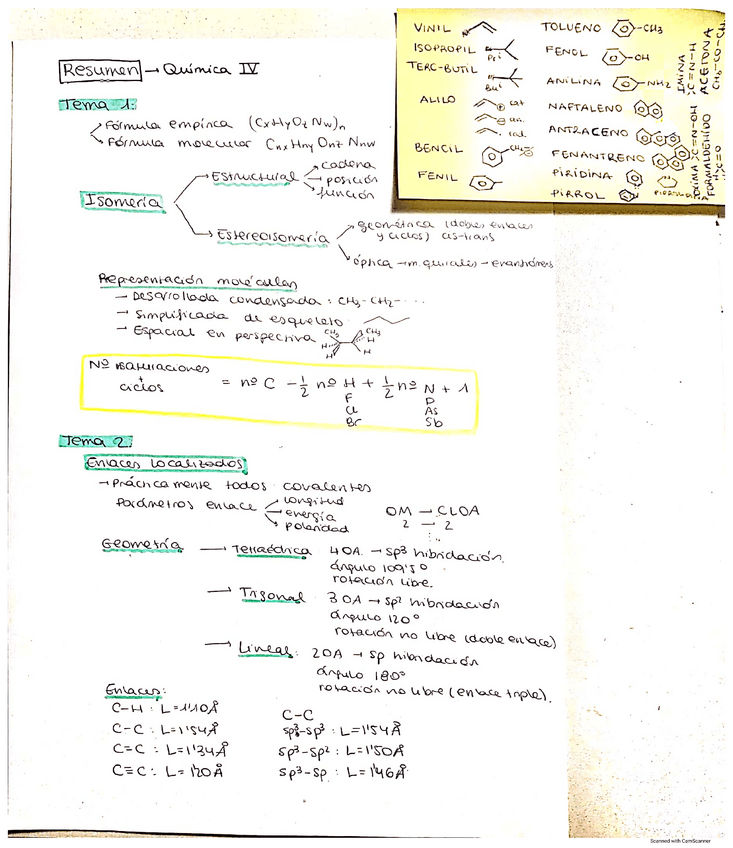 Resumen → Química IV
Tema 1:
Fórmula empírica (CxHyOzNw)n
Fórmula molecular CnxHnyOnzNnw
Isomería
Estructural
cadena
posición
función
Estereoisomería
geométrica (dobles enlaces
y ciclos) cis-trans
óptica → m. quirales → enantiómeros
Representación moléculas
- Desarrollada condensada: CH3-CH2-...
- Simplificada de esqueleto
- Espacial en perspectiva
CH3
CH3
H
H
H
H
Nº insaturaciones
+
ciclos
= nº C - 1/2 nº H + 1/2 nº N + 1
F
P
Cl
As
Br
Sb
Tema 2:
Enlaces Localizados
→ Prácticamente todos covalentes
Parámetros enlace
longitud
energía
polaridad
OM → CLOA
2 → 2
Geometría
→ Tetraédrica 4 OA → sp3 hibridación
ángulo 109'5º
rotación libre.
→ Trigonal 3 OA → sp2 hibridación
ángulo 120º
rotación no libre (doble enlace)
→ Lineal: 2 OA → sp hibridación
ángulo 180º
rotación no libre (enlace triple).
Enlaces:
C-H: L=1'10Å
C-C: L=1'54Å
C=C: L=1'34Å
C≡C: L=1'20Å
C-C
sp3-sp3: L=1'54Å
sp3-sp2: L=1'50Å
sp3-sp: L=1'46Å
VINIL
ISOPROPIL
Pri
TERC-BUTIL
But
ALILO
cat
an.
rad.
BENCIL
CH2
FENIL
TOLUENO
-CH3
FENOL
-OH
ANILINA
-NH2
NAFTALENO
ANTRACENO
FENANTRENO
PIRIDINA
PIRROL
IMINA
C=N-H
ACETONA
CH3-CO-CH3
OXIMA
C=N-OH
FORMALDEHIDO
Scanned with CamScanner